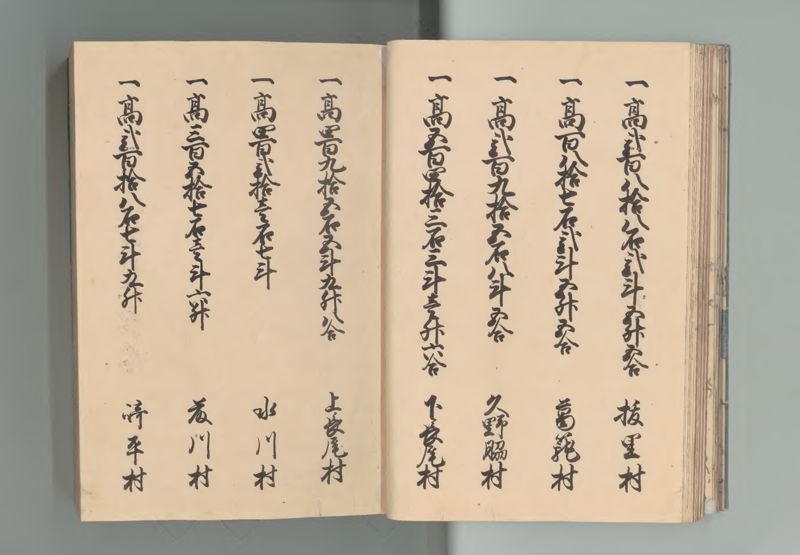 一高弐百八拾八石弐斗五升五合 抜里村
一高百八拾七石弐斗五升五合 葛籠村
一高弐百九拾五石八斗五合 久野脇村
一高五百四拾三石三斗壱升六合 下長尾村
一高四百九拾五石五斗九升八合 上長尾村
一高四百弐拾壱石七斗 水川村
一高三百五拾七石壱斗六升 藤川村
一高弐百拾八石七斗九升 崎平村